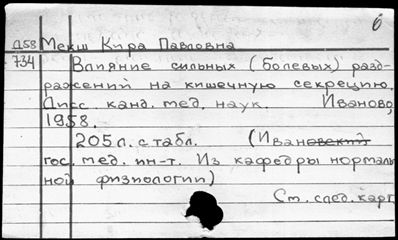 б
Д58 Мекш Кира Павловна
734 Влияние сильных (болевых) разд-
ражений на кишечную секрецию.
Дисс. канд. мед. наук. Иваново,
1958.
205л. с табл. (Ивановский
гос. мед. ин-т. Из кафедры нормаль
ной физиологии)
См. след. карт